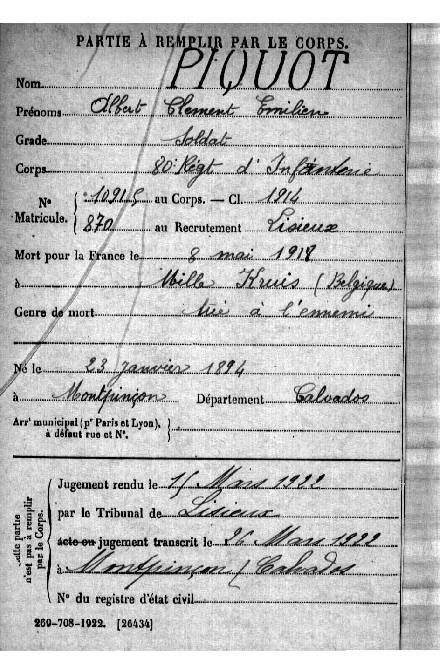 PARTIE À REMPLIR PAR LE CORPS.
Nom PIQUOT
Prénoms Albert Clement Emilien
Grade Soldat
Corps 80e Régt d'Infanterie
Nos Matricule. { 10915 au Corps. — Cl. 1914
870 au Recrutement Lisieux
Mort pour la France le 8 mai 1918
à Mille Kruis (Belgique)
Genre de mort tué à l'ennemi
Né le 23 Janvier 1894
à Montpinçon Département Calvados
Arrt municipal (pr Paris et Lyon), à défaut rue et No. }
Cette partie n'est pas à remplir par le Corps.
Jugement rendu le 15 Mars 1922
par le Tribunal de Lisieux
acte ou jugement transcrit le 26 Mars 1922
à Montpinçon (Calvados
No du registre d'état civil
269-708-1922. [26434]